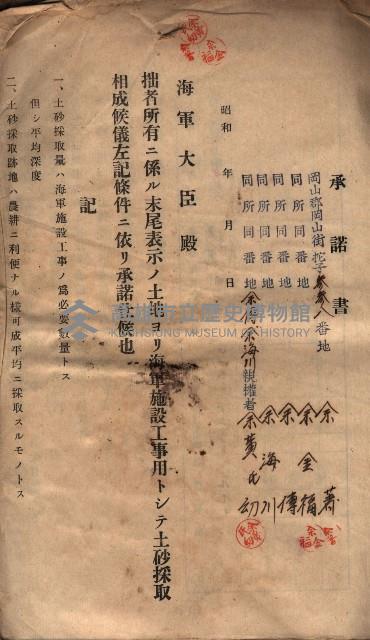 承諾書
岡山郡岡山街
番地
同所同番地 余
同所同番地 余金福
同所同番地 余傳
同所同番地 余海川
余傳余海川親權者 余黃氏幼
昭和 年 月 日
海軍大臣殿
拙者所有ニ係ル末尾表示ノ土地ヨリ海軍施設工事用トシテ土砂採取
相成候儀左記條件ニ依リ承諾仕候也
記
一、土砂採取量ハ海軍施設工事ノ爲必要數量トス
但シ平均深度
二、土砂採取跡地ハ農耕ニ利便ナル樣可成平均ニ採取スルモノトス
高雄市立歷史博物館
KAOHSIUNG MUSEUM OF HISTORY